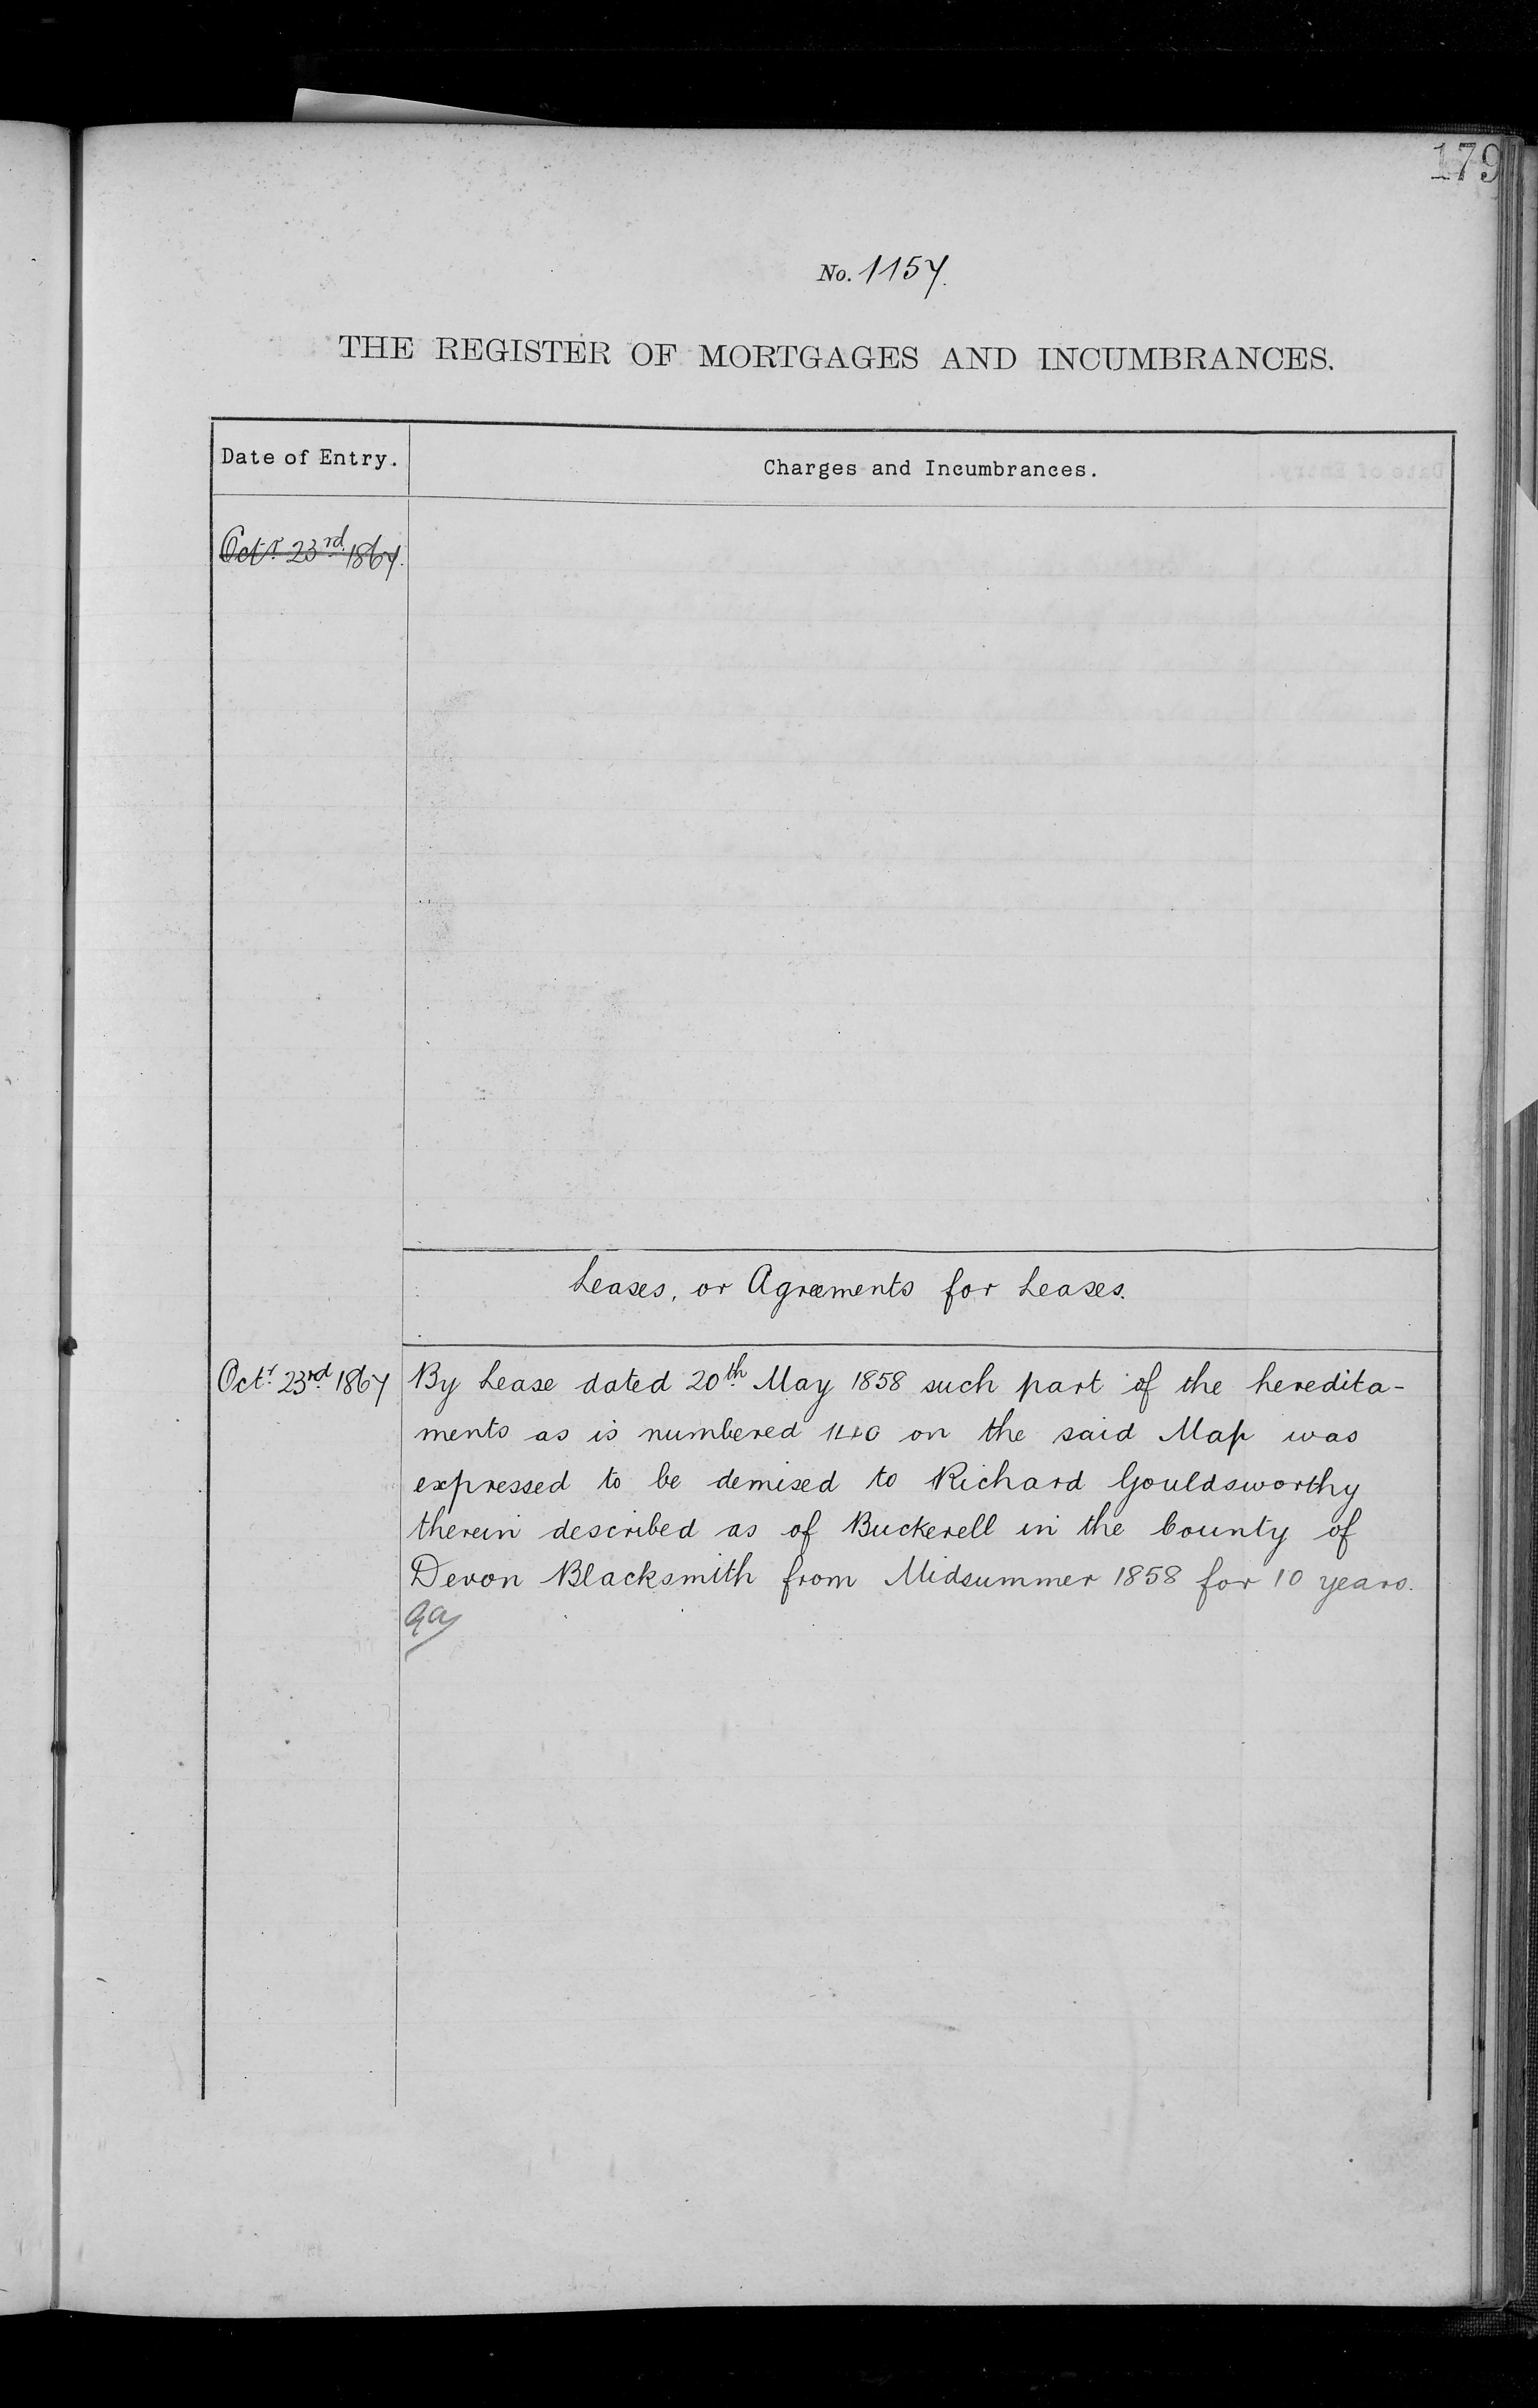 179
No. 1157.
THE REGISTER OF MORTGAGES AND INCUMBRANCES.
Date of Entry.
Charges and Incumbrances.
Octr 23rd 1867.
Leases, or Agreements for Leases.
Octr 23rd 1867
By Lease dated 20th May 1858 such part of the heredita-
ments as is numbered 140 on the said Map was
expressed to be demised to Richard Gouldsworthy
therein described as of Buckerell in the County of
Devon Blacksmith from Midsummer 1858 for 10 years.